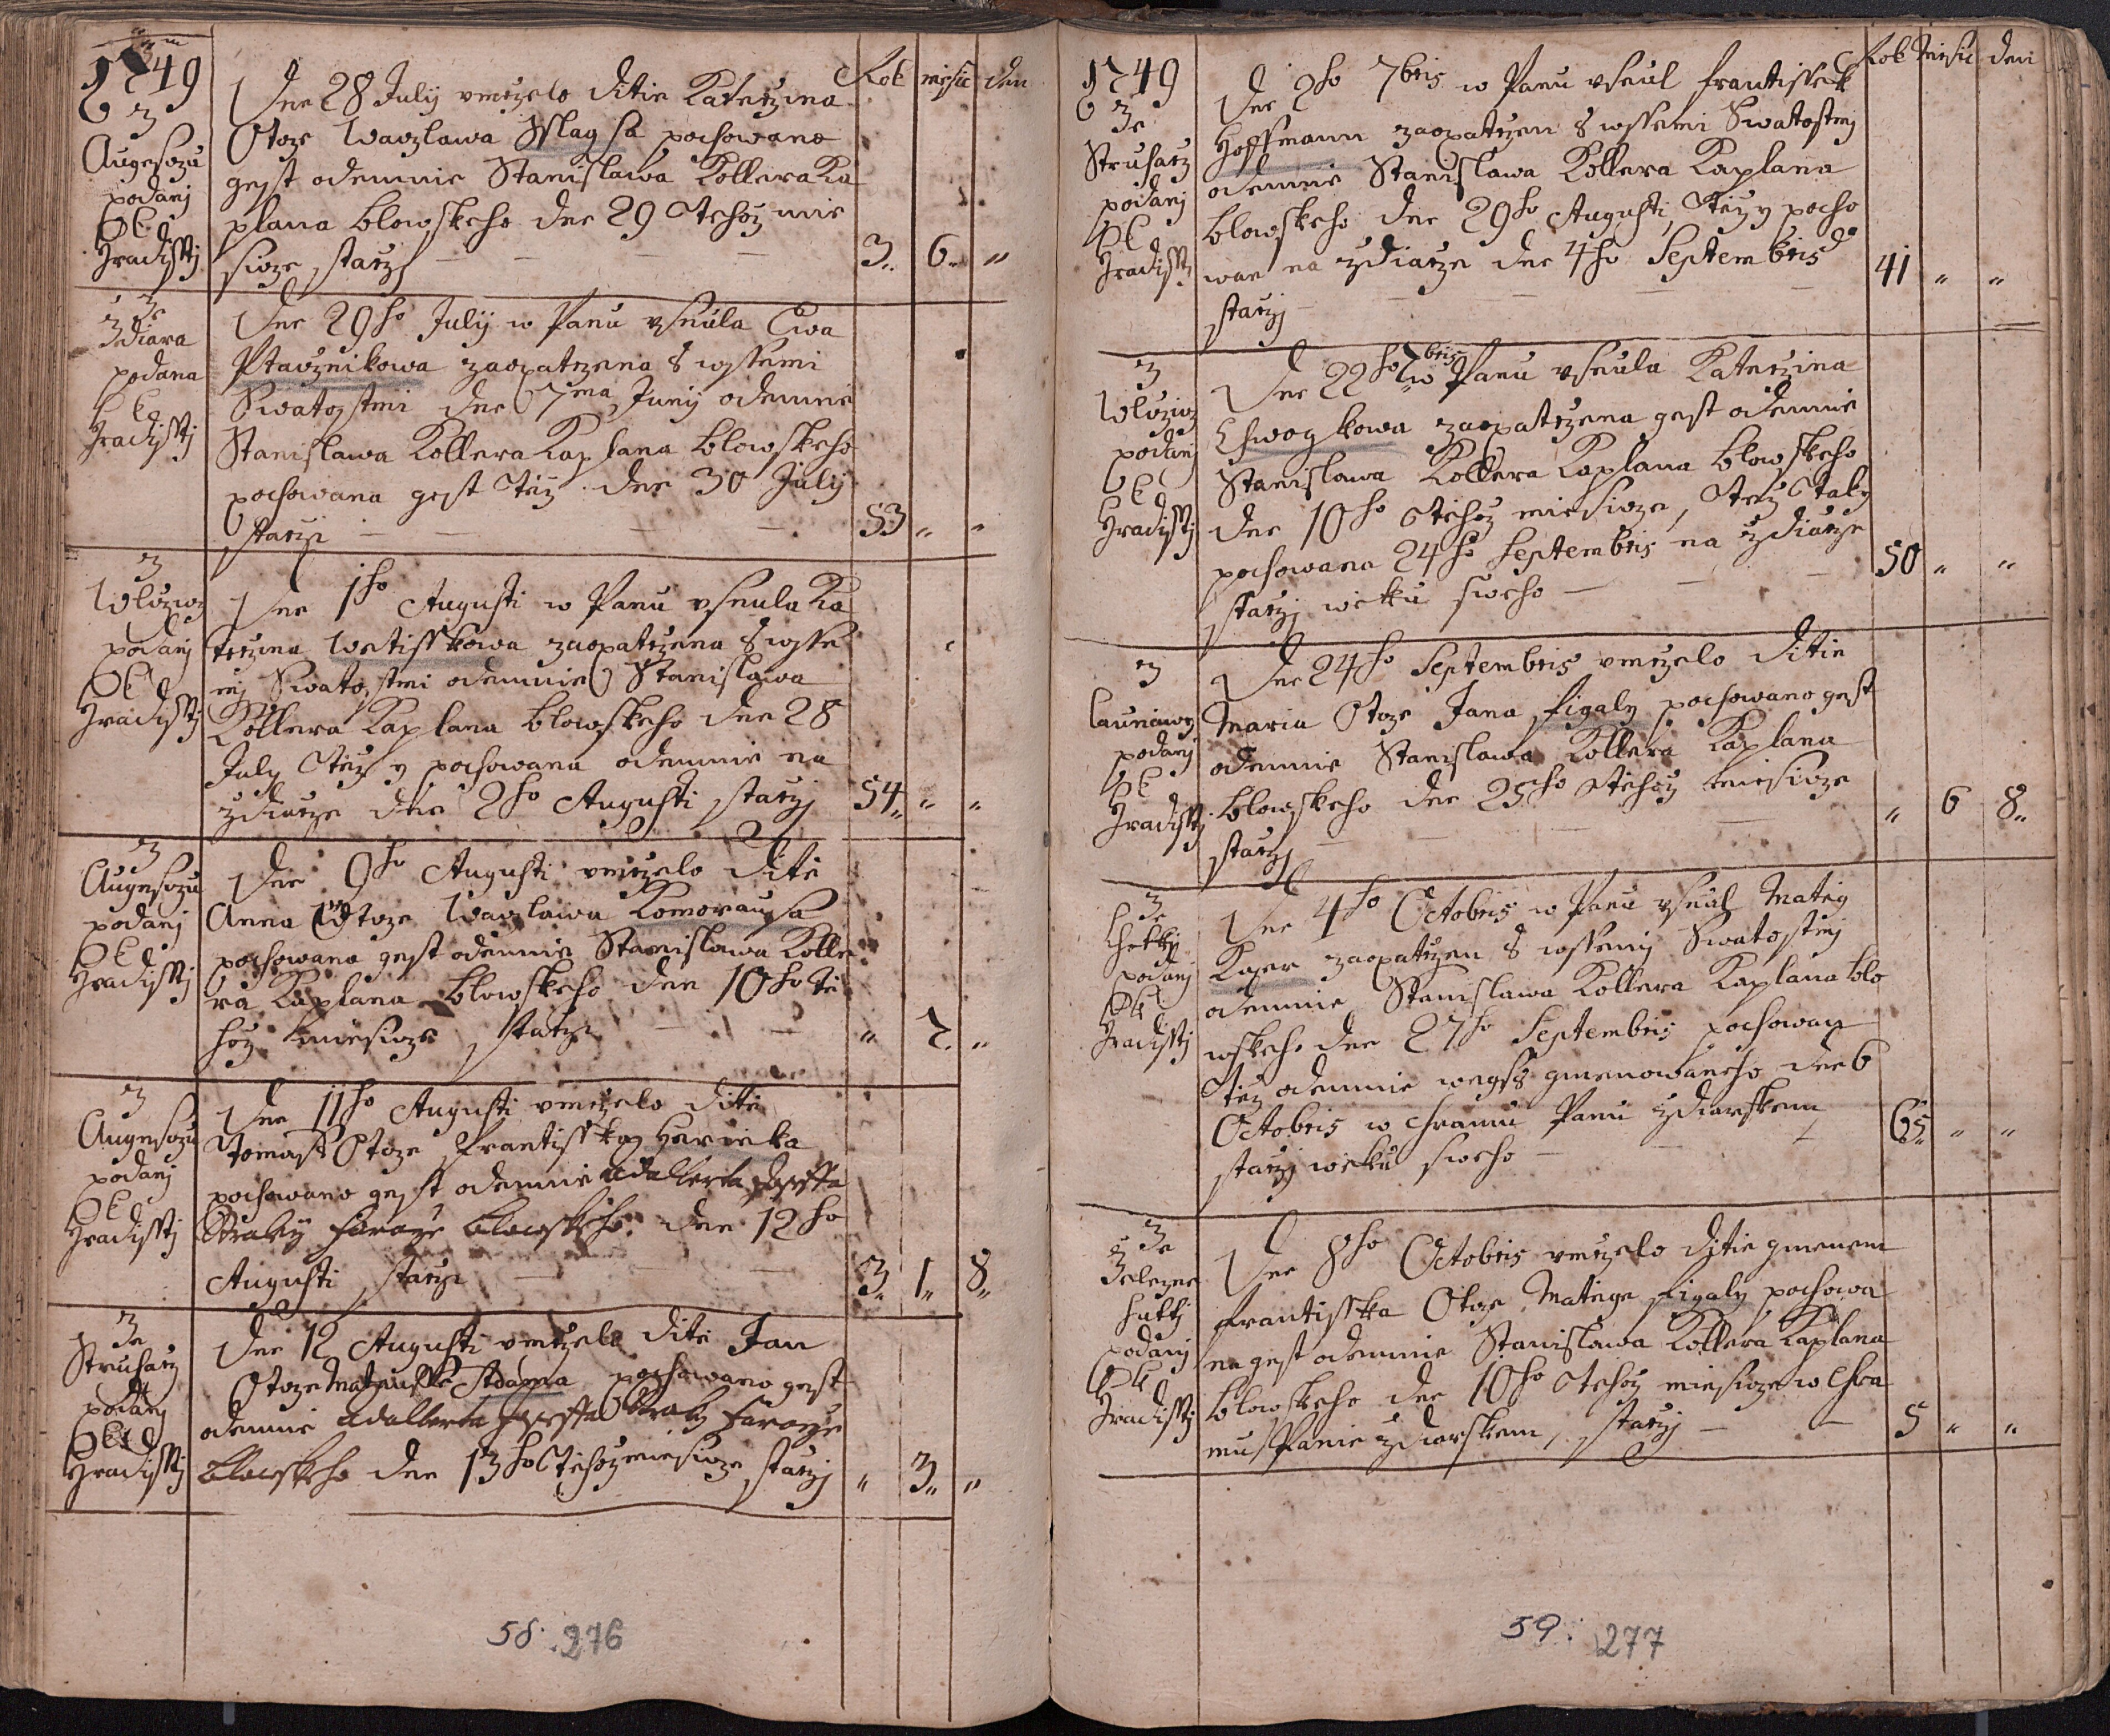 1749
Rok mesic den
z
Augezdu
podanj
Hradisstj
Dne 28 July umrzelo Ditie Katerzina
Otcze Waczlawa Wlagsa pochowano
gest odemnie Stanislawa Kollera Ka
plana blowskeho dne 29 Tehoz mie
sicze starzj — — — 3 " 6 " "
Ze
Zdiara
podana
Hradisstj
Dne 29ho July w Panu usnula Ewa
Ptacznikowa zaopatrzena s wssemi
Swatostmi dne 7ma Juny odemnie
Stanislawa Kollera Kaplana blowskeho
pochowana gest Téz dne 30 July
starzj — — — 53 " "
z
Wlcicz
podanj
Hradisstj
Dne 1ho Augusti w Panu usnula Ka
terzina Wetisskowa zaopatrzena s wsse
mj Swatostmi odemnie Stanislawa
Kollera Kaplana blowskeho dne 28
July Téz y pochowana odemnie na
zdiarze dne 2ho Augusti starzj 54 " " "
z
Augezdu
podanj
Hradisstj
Dne 9ho Augusti umrzelo Dite
Anna Otcze Waczlawa Komorausa
pochowano gest odemnie Stanislawa Kolle
ra Kaplana blowskeho dne 10ho Te
hoz miesicze starzj — — " 2 " "
z
Augezdu
podanj
Hradisstj
Dne 11ho Augusti umrzelo Dite
Tomass Otcze Frantisska Harinka
pochowano gest odemnie Adalberta Josepha
Straky Faraře blowskeho dne 12ho
Augusti starzj — — 3 " 1 " 8 "
Ze
Struharz
podanj
Hradisstj
Dne 12 Augusti umrzelo Dite Jan
Otcze pochowano gest
odemnie Adalberta Josepha Straky Faraře
blowskeho dne 13ho Tehoz miesicze starzj " 3 " "
58. 276
1749
Rok mesic den
Ze
Struharz
podanj
Hradisstj
Dne 2ho 7bris w Panu usnul Frantissek
Hoffmann zaopatrzen s wssemi Swatostmj
odemnie Stanislawa Kollera Kaplana
blowskeho dne 29ho Augusti, Téz y pocho
wan na zdiarze dne 4ho Septembris
starzj — — — 41 " "
z
Wlcicz
podanj
Hradisstj
Dne 22ho 7bris w Panu usnula Katerzina
Chwogkowa zaopatrzena gest odemnie
Stanislawa Kollera Kaplana blowskeho
dne 10ho Tehoz miesicze, Téz Taky
pochowana 24ho Septembris na zdiarze
starzj wieku sweho — — 50 " "
z
podanj
Hradisstj
Dne 24ho Septembris umrzelo Ditie
Maria Otcze Jana Figaly pochowano gest
odemnie Stanislawa Kollera Kaplana
blowskeho dne 25ho Tehoz miesicze
starzj — — — " 6 8 "
Ze
Lhotky
podanj
Hradisstj
Dne 4ho Octobris w Panu usnul Mateg
Kager zaopatrzen s wssemj Swatostmj
odemnie Stanislawa Kollera Kaplana blo
wskeho dne 27ho Septembris pochowan
Téz odemnie wegss gmenowaneho dne 6
Octobris w chramu Panu zdiarskem
starzj wieku sweho — — 65 " " "
Ze
Zelezne
hutti
podanj
Hradisstj
Dne 8ho Octobris umrzelo Ditie gmenem
Frantisska Otcze Matege Figaly pochowa
no gest odemnie Stanislawa Kollera Kaplana
blowskeho dne 10ho Tehoz miesicze w Chra
mu Panie zdiarskem, starzj — — 5 " "
59. 277